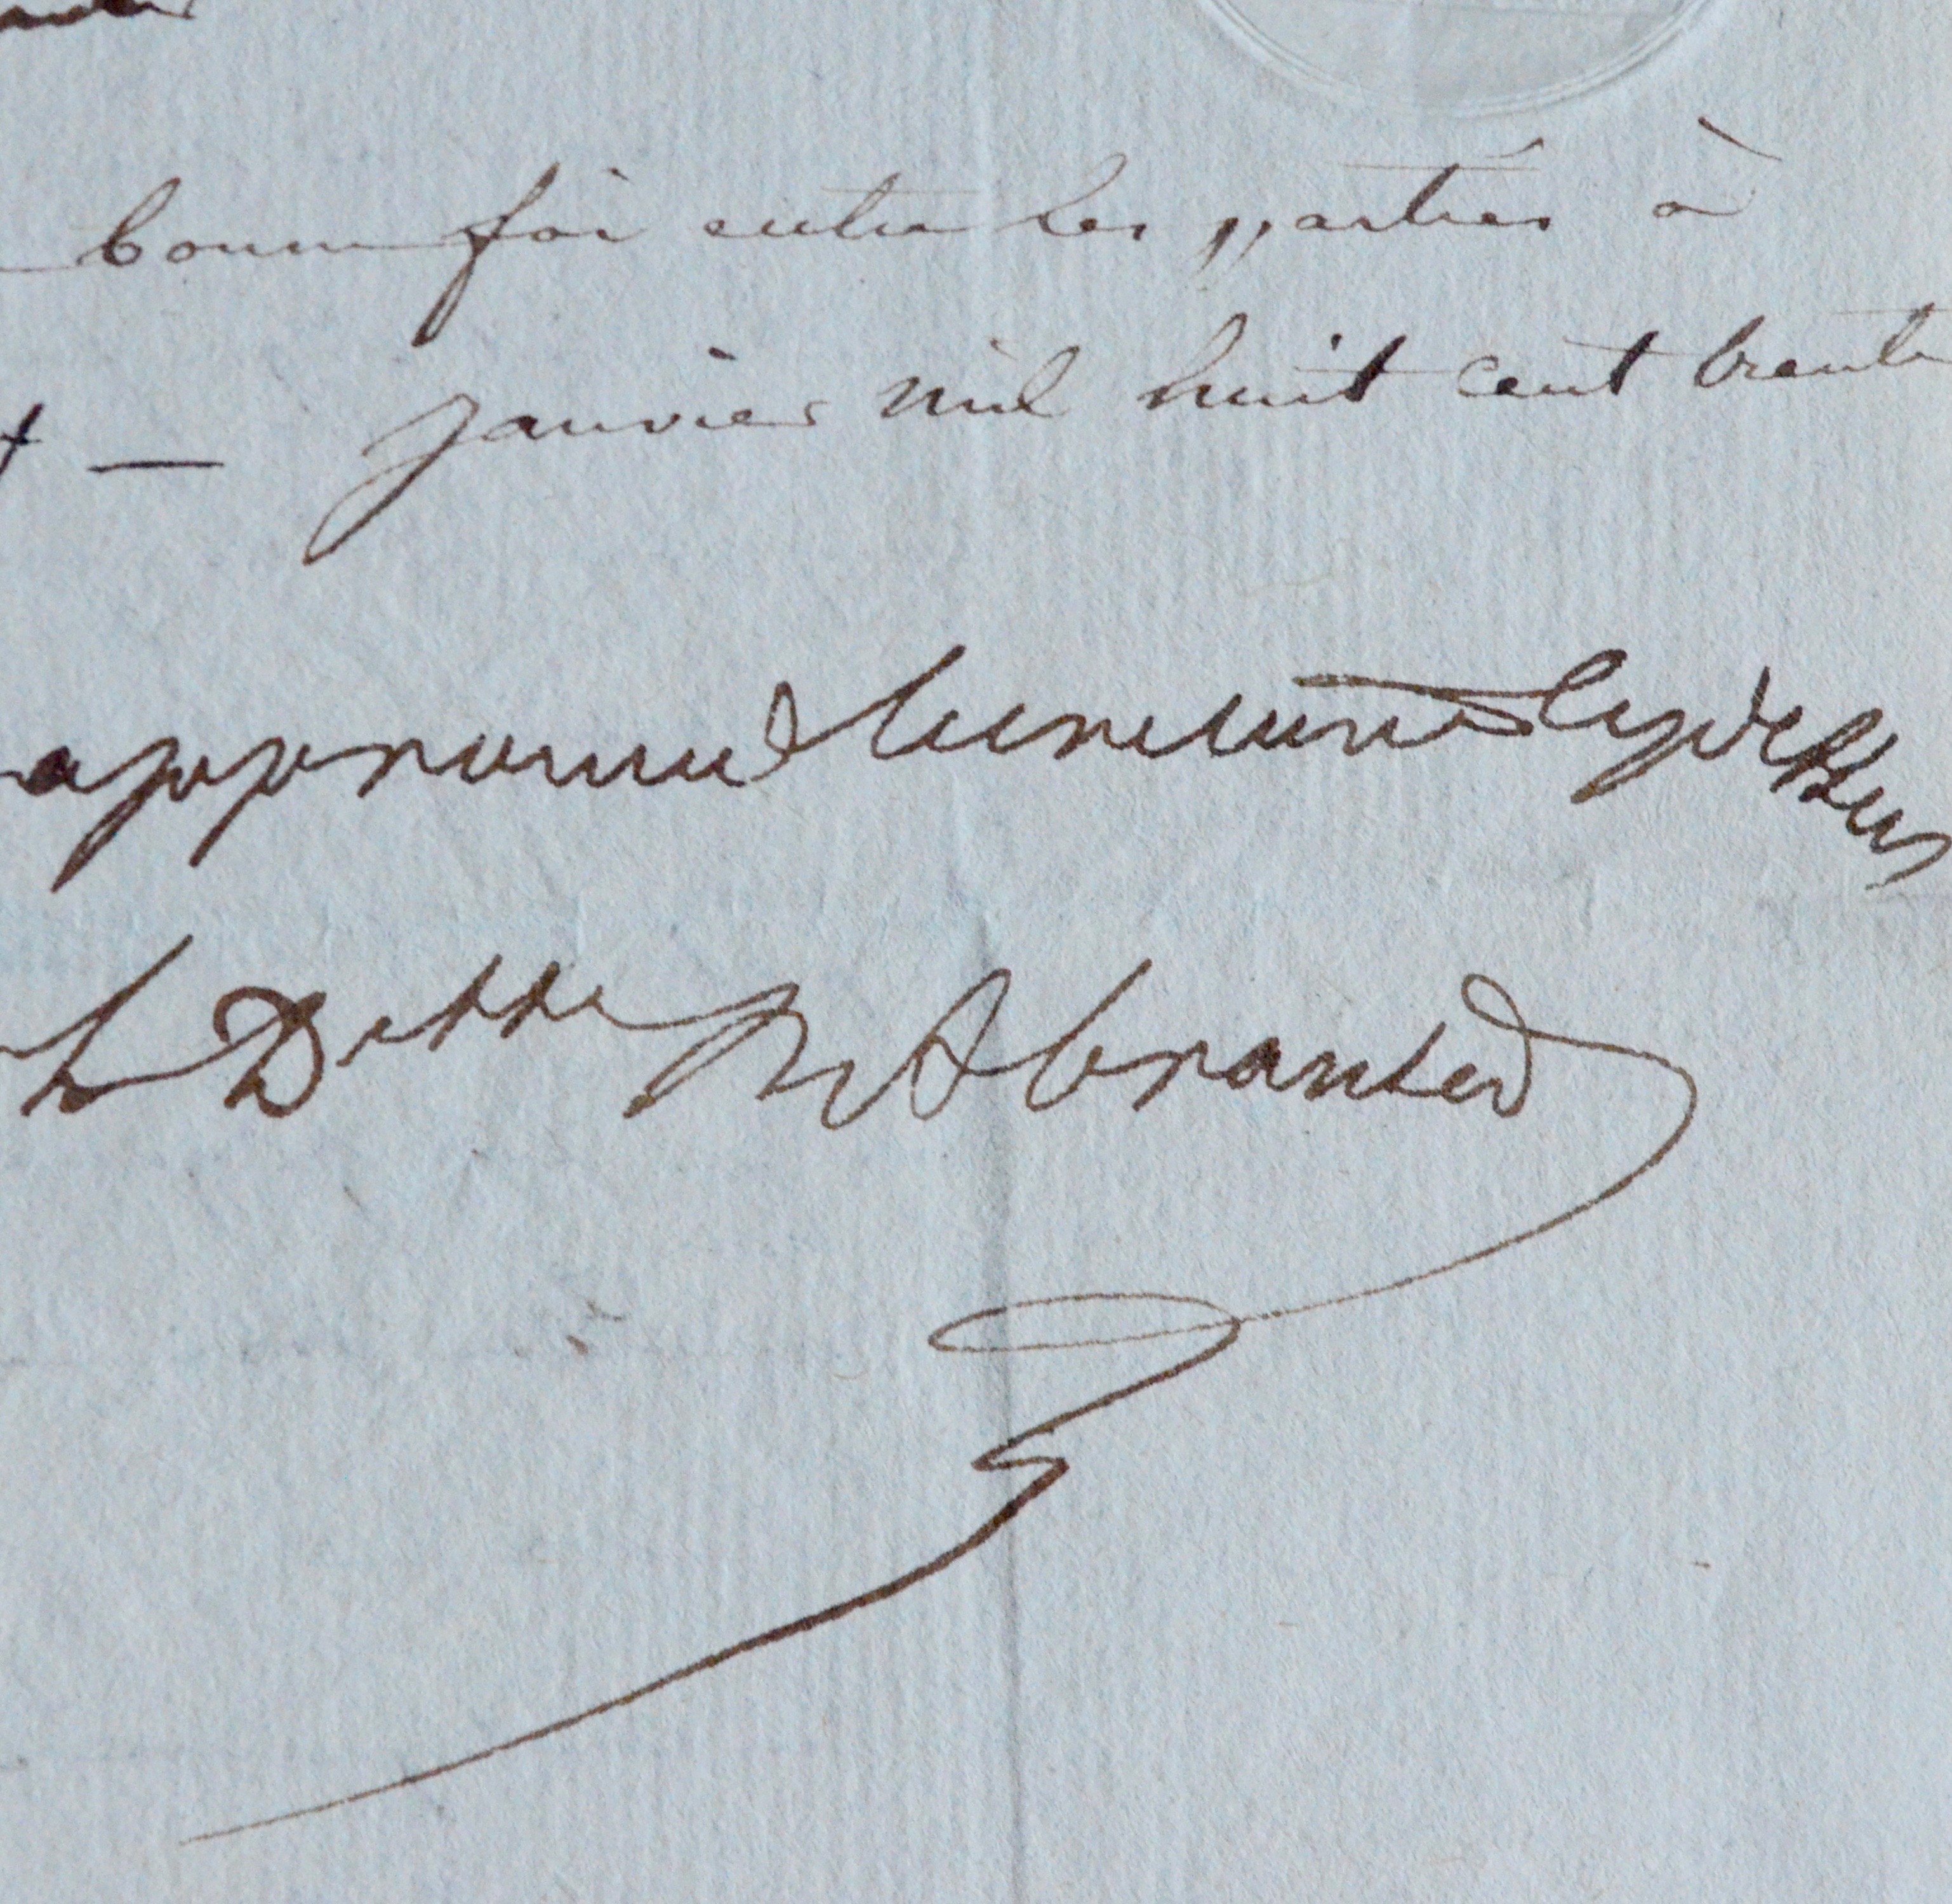 bonne foi entre les parties à
— janvier mil huit cent trente
approuvé l'ecriture cy dessus
La Dchsse D'Abrantès